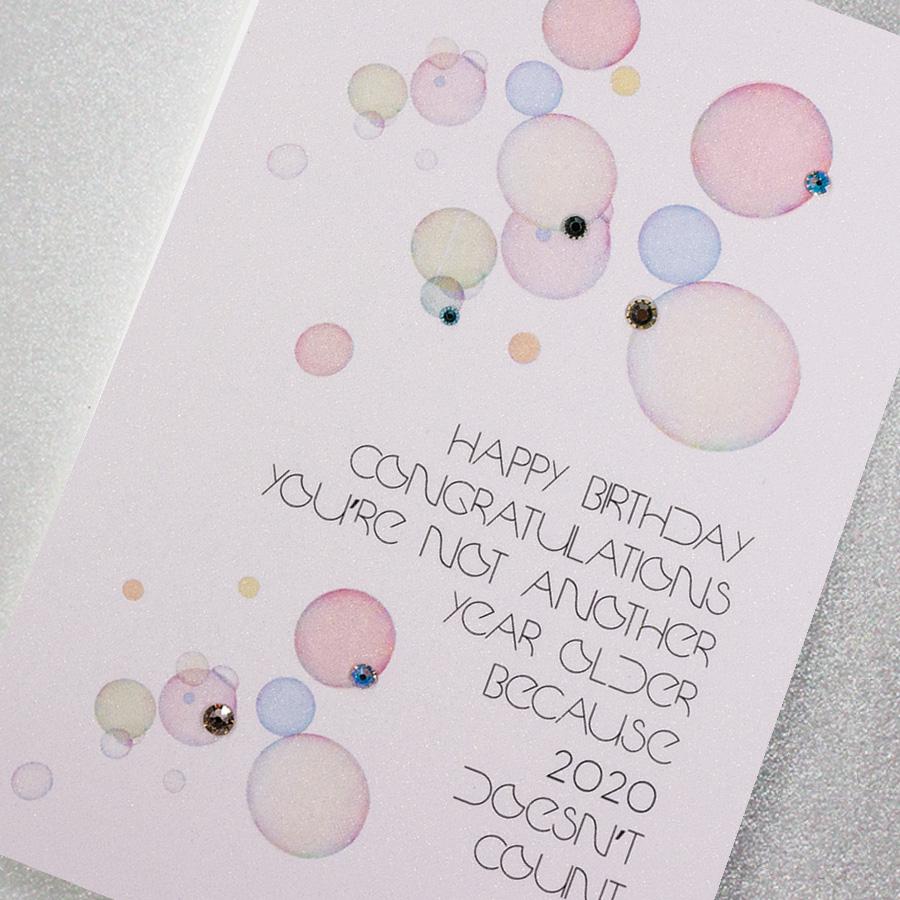 HAPPY BIRTHDAY
CONGRATULATIONS
YOU'RE NOT ANOTHER
YEAR OLDER
BECAUSE
2020
DOESN'T
COUNT